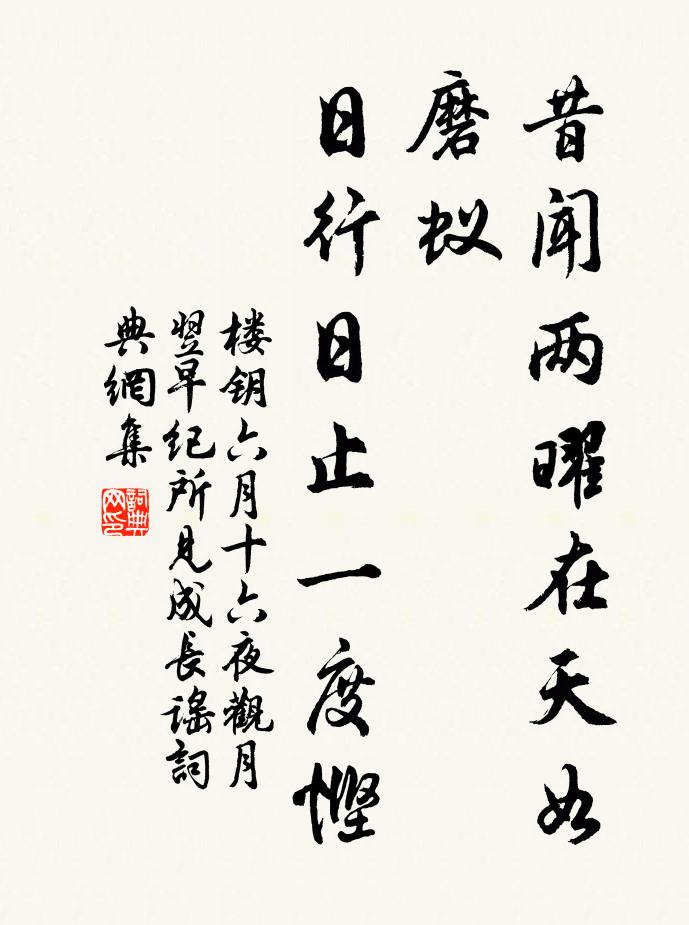 昔闻两曜在天如
磨蚁
日行日止一度悭
楼钥六月十六夜觀月
翌早纪所見成長謠詞
典網集
詞典网印